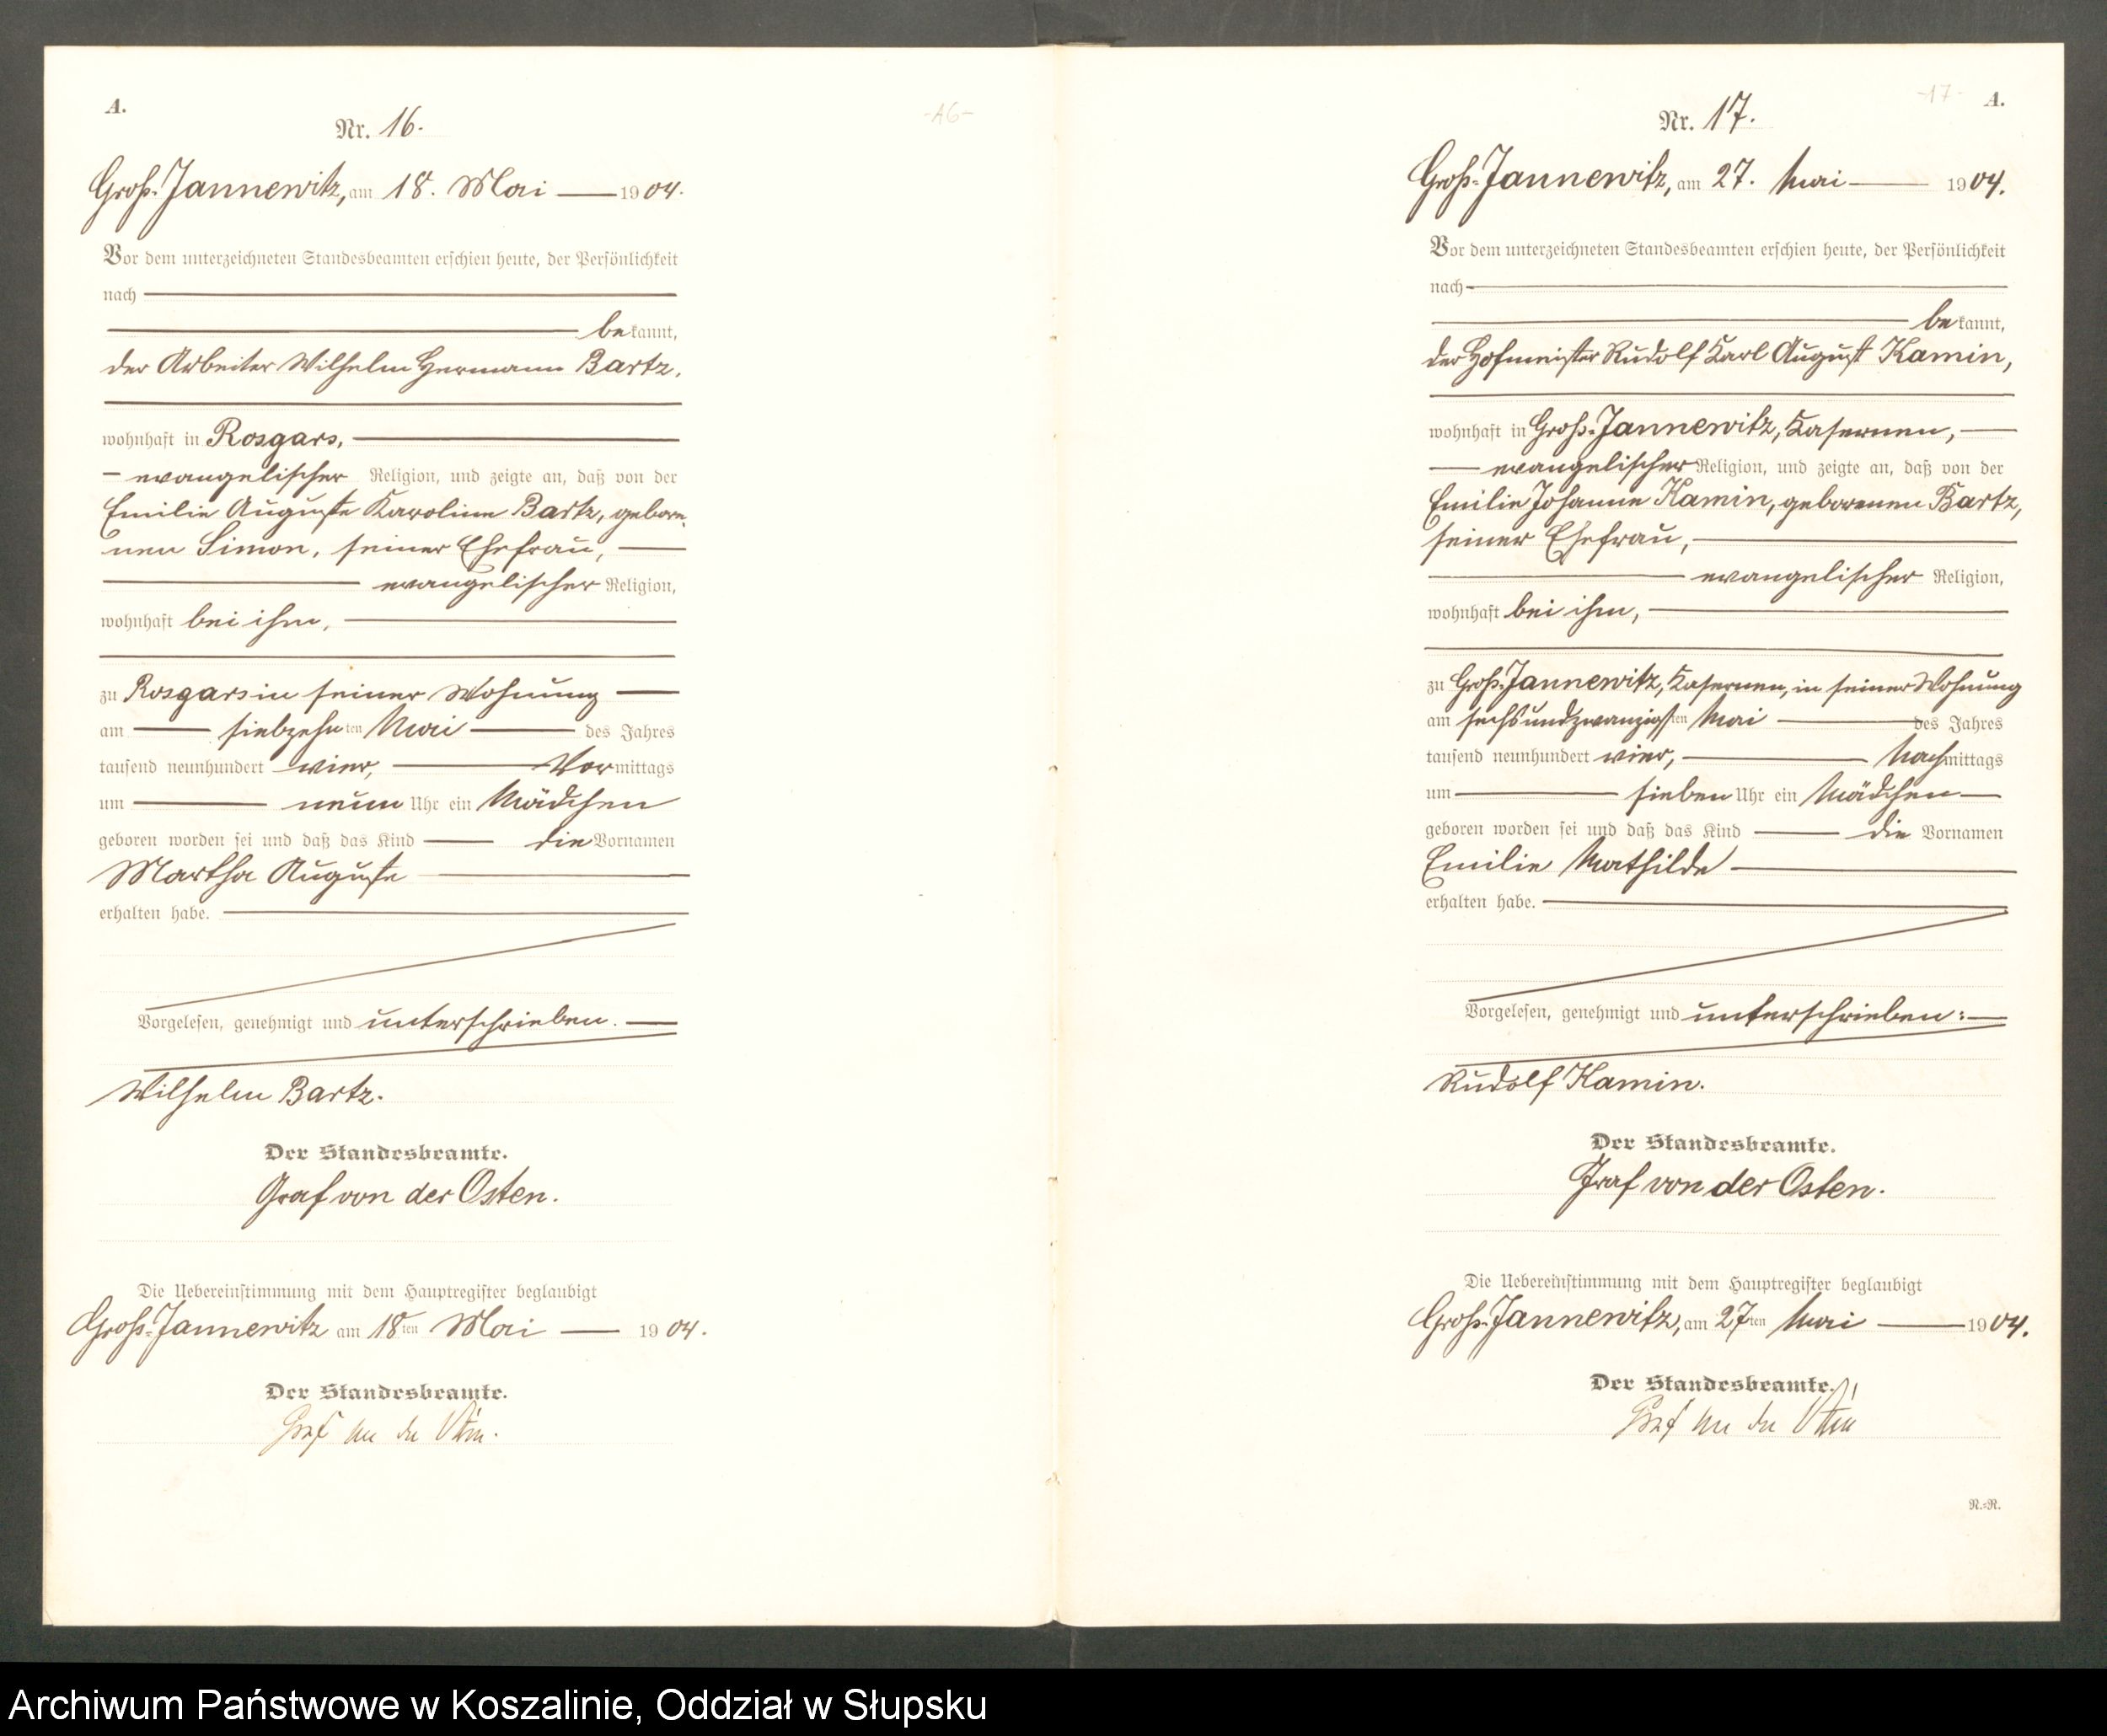 A.
-16-
Nr. 16.
Groß-Jannewitz, am 18. Mai 1904.
Vor dem unterzeichneten Standesbeamten erschien heute, der Persönlichkeit
nach
bekannt,
der Arbeiter Wilhelm Hermann Bartz,
wohnhaft in Rosgars,
evangelischer Religion, und zeigte an, daß von der
Emilie Auguste Karoline Bartz, gebore-
nen Simon, seiner Ehefrau,
evangelischer Religion,
wohnhaft bei ihm,
zu Rosgars in seiner Wohnung
am siebzehnten Mai des Jahres
tausend neunhundert vier, Vormittags
um neun Uhr ein Mädchen
geboren worden sei und daß das Kind die Vornamen
Martha Auguste
erhalten habe.
Vorgelesen, genehmigt und unterschrieben.
Wilhelm Bartz.
Der Standesbeamte.
Graf von der Osten.
Die Uebereinstimmung mit dem Hauptregister beglaubigt
Groß-Jannewitz am 18ten Mai 1904.
Der Standesbeamte.
Graf von der Osten.
-17-
A.
Nr. 17.
Groß-Jannewitz, am 27. Mai 1904.
Vor dem unterzeichneten Standesbeamten erschien heute, der Persönlichkeit
nach
bekannt,
der Hofmeister Rudolf Karl August Kamin,
wohnhaft in Groß-Jannewitz, Kasernen,
evangelischer Religion, und zeigte an, daß von der
Emilie Johanne Kamin, geborenen Bartz,
seiner Ehefrau,
evangelischer Religion,
wohnhaft bei ihm,
zu Groß-Jannewitz, Kasernen, in seiner Wohnung
am sechsundzwanzigsten Mai des Jahres
tausend neunhundert vier, Nachmittags
um sieben Uhr ein Mädchen
geboren worden sei und daß das Kind die Vornamen
Emilie Mathilde
erhalten habe.
Vorgelesen, genehmigt und unterschrieben:
Rudolf Kamin.
Der Standesbeamte.
Graf von der Osten.
Die Uebereinstimmung mit dem Hauptregister beglaubigt
Groß-Jannewitz, am 27ten Mai 1904.
Der Standesbeamte.
Graf von der Osten
N.=R.
Archiwum Państwowe w Koszalinie, Oddział w Słupsku